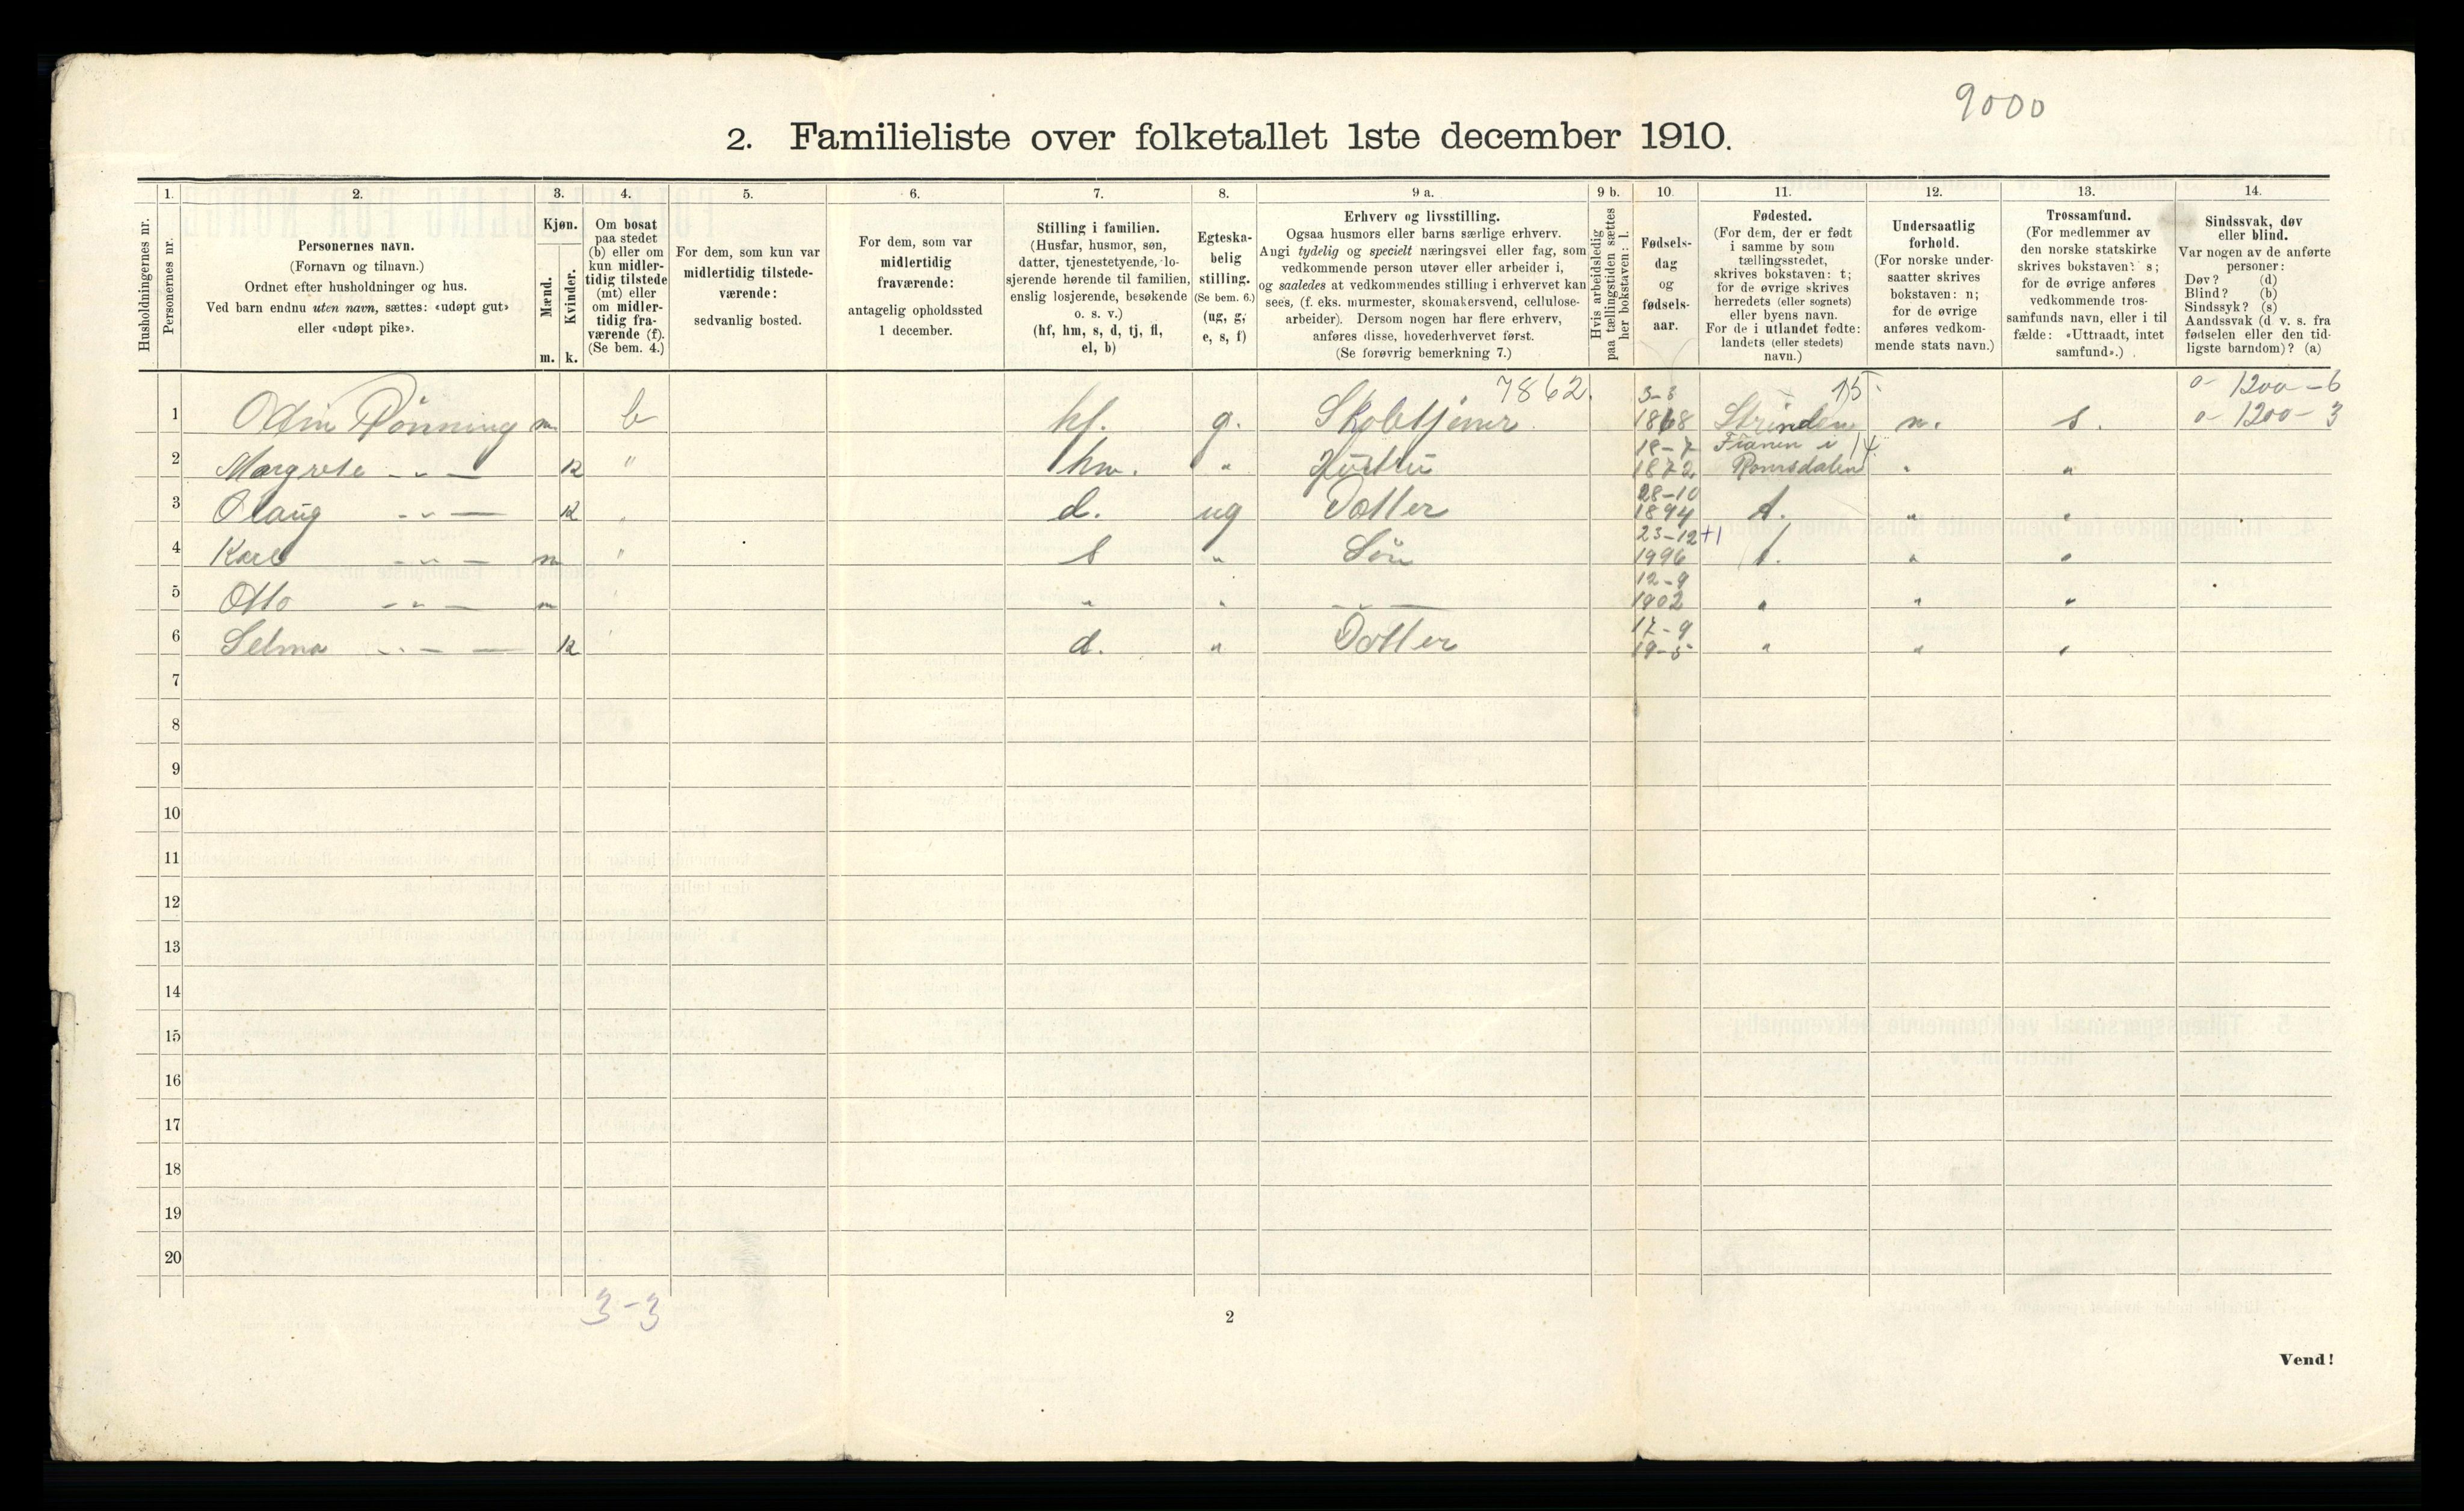 9000
2. Familieliste over folketallet 1ste december 1910.
Husholdningernes nr.
1.
Personernes nr.
2.
Personernes navn.
(Fornavn og tilnavn.)
Ordnet efter husholdninger og hus.
Ved barn endnu uten navn, sættes: «udøpt gut»
eller «udøpt pike».
3.
Kjøn.
Mænd.
Kvinder.
m. k.
4.
Om bosat
paa stedet
(b) eller om
kun midler-
tidig tilstede
(mt) eller
om midler-
tidig fra-
værende (f).
(Se bem. 4.)
5.
For dem, som kun var
midlertidig tilstede-
værende:
sedvanlig bosted.
6.
For dem, som var
midlertidig
fraværende:
antagelig opholdssted
1 december.
7.
Stilling i familien.
(Husfar, husmor, søn,
datter, tjenestetyende, lo-
sjerende hørende til familien,
enslig losjerende, besøkende
o. s. v.)
(hf, hm, s, d, tj, fl,
el, b)
8.
Egteska-
belig
stilling.
(Se bem. 6.)
(ug, g,
e, s, f)
9 a.
Erhverv og livsstilling.
Ogsaa husmors eller barns særlige erhverv.
Angi tydelig og specielt næringsvei eller fag, som
vedkommende person utøver eller arbeider i,
og saaledes at vedkommendes stilling i erhvervet kan
sees, (f. eks. murmester, skomakersvend, cellulose-
arbeider). Dersom nogen har flere erhverv,
anføres disse, hovederhvervet først.
(Se forøvrig bemerkning 7.)
9 b.
Hvis arbeidsledig
paa tællingstiden sættes
her bokstaven: l.
10.
Fødsels-
dag
og
fødsels-
aar.
11.
Fødested.
(For dem, der er født
i samme by som
tællingsstedet,
skrives bokstaven: t;
for de øvrige skrives
herredets (eller sognets)
eller byens navn.
For de i utlandet fødte:
landets (eller stedets)
navn.)
12.
Undersaatlig
forhold.
(For norske under-
saatter skrives
bokstaven: n;
for de øvrige
anføres vedkom-
mende stats navn.)
13.
Trossamfund.
(For medlemmer av
den norske statskirke
skrives bokstaven: s;
for de øvrige anføres
vedkommende tros-
samfunds navn, eller i til
fælde: «Uttraadt, intet
samfund».)
14.
Sindssvak, døv
eller blind.
Var nogen av de anførte
personer:
Døv? (d)
Blind? (b)
Sindssyk? (s)
Aandssvak (d. v. s. fra
fødselen eller den tid-
ligste barndom)? (a)
7862. 3-3 15. 0- 1200-6
1 Odin Rønning m. b hf. g. 1868 Strinden n. s. 0-1200-3
18-7 i 14
2 Margrete - " - k " hm. " Hustru 1872 Romsdalen " "
28-10
3 Olaug - " - k " d. ug Datter 1894 t. " "
23-12 +1
4 Karl - " - m " s " Søn 1996 t. " "
12-9
5 Otto - " - m " " " - " - 1902 " " "
17-9
6 Selma - " - k " d. " Datter 19-5 " " "
7
8
9
10
11
12
13
14
15
16
17
18
19
20
3-3
2
Vend!